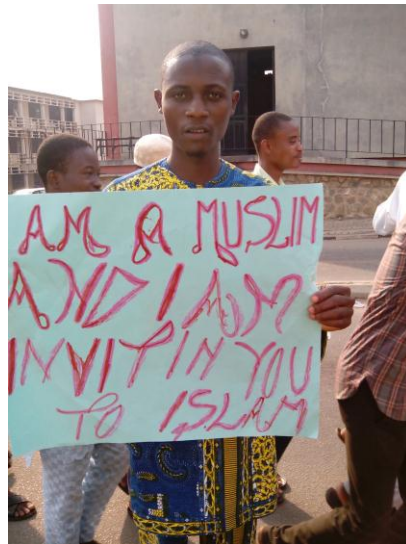 AM A MUSLIM
AND I AM
INVITIN YOU
TO ISLAM